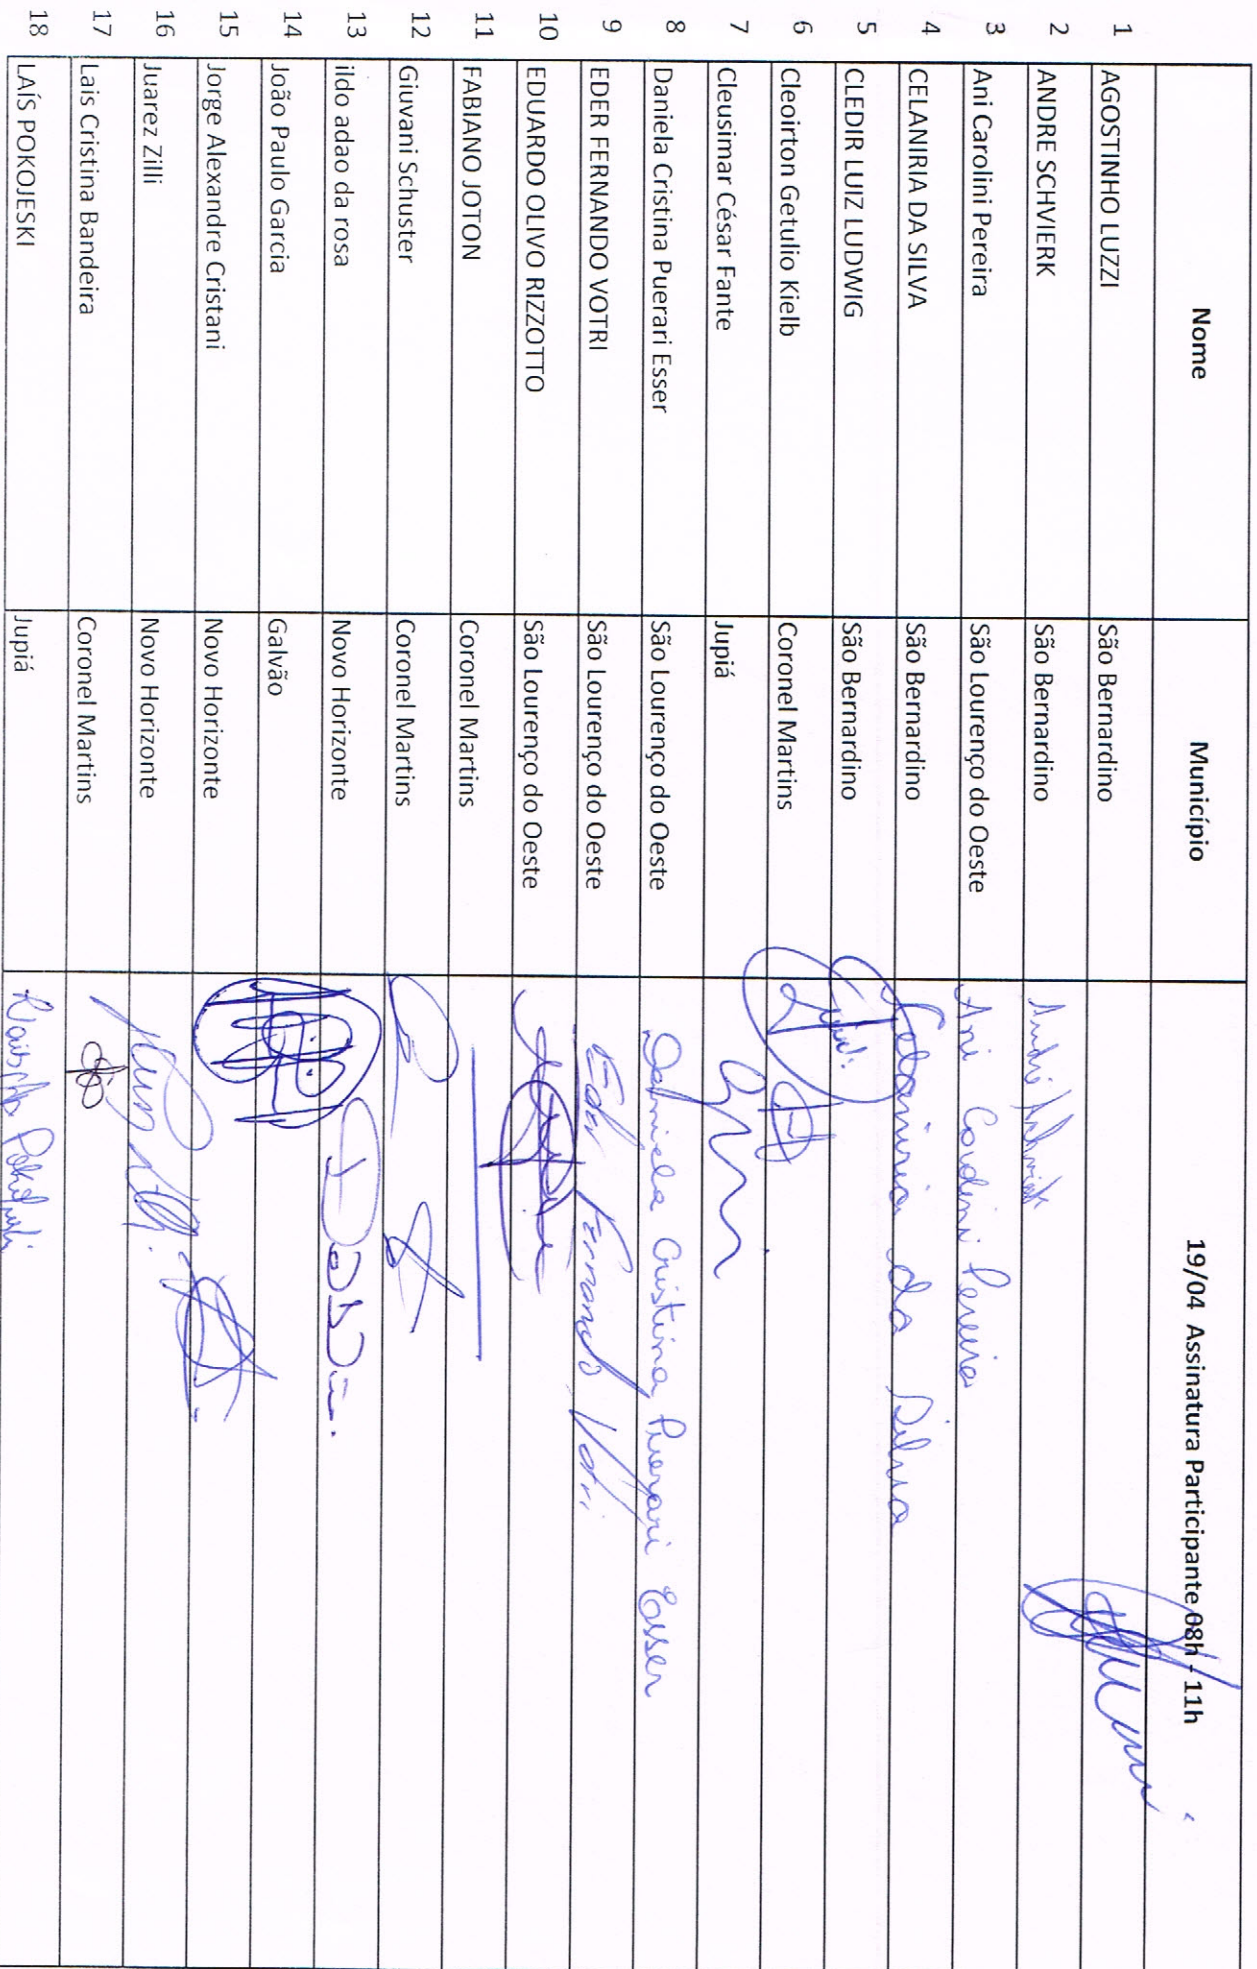 Nome Município 19/04 Assinatura Participante 08h - 11h
1 AGOSTINHO LUZZI São Bernardino
2 ANDRE SCHVIERK São Bernardino André
3 Ani Carolini Pereira São Lourenço do Oeste Ani Carolini Pereira
4 CELANIRIA DA SILVA São Bernardino Celaniria da Silva
5 CLEDIR LUIZ LUDWIG São Bernardino
6 Cleoirton Getulio Kielb Coronel Martins
7 Cleusimar César Fante Jupiá
8 Daniela Cristina Puerari Esser São Lourenço do Oeste Daniela Cristina Puerari Esser
9 EDER FERNANDO VOTRI São Lourenço do Oeste Eder Fernando Votri
10 EDUARDO OLIVO RIZZOTTO São Lourenço do Oeste
11 FABIANO JOTON Coronel Martins
12 Giuvani Schuster Coronel Martins
13 ildo adao da rosa Novo Horizonte
14 João Paulo Garcia Galvão
15 Jorge Alexandre Cristani Novo Horizonte
16 Juarez Zilli Novo Horizonte
17 Lais Cristina Bandeira Coronel Martins
18 LAÍS POKOJESKI Jupiá